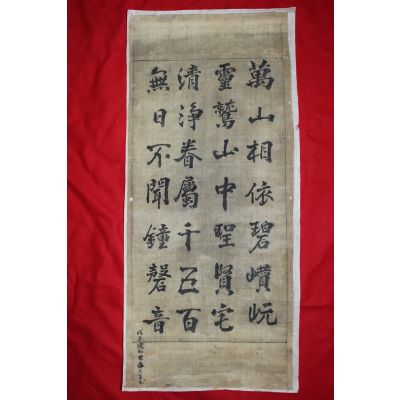 萬山相依碧巑岏
靈鷲山中聖賢宅
清淨眷屬千五百
無日不聞鐘磬音